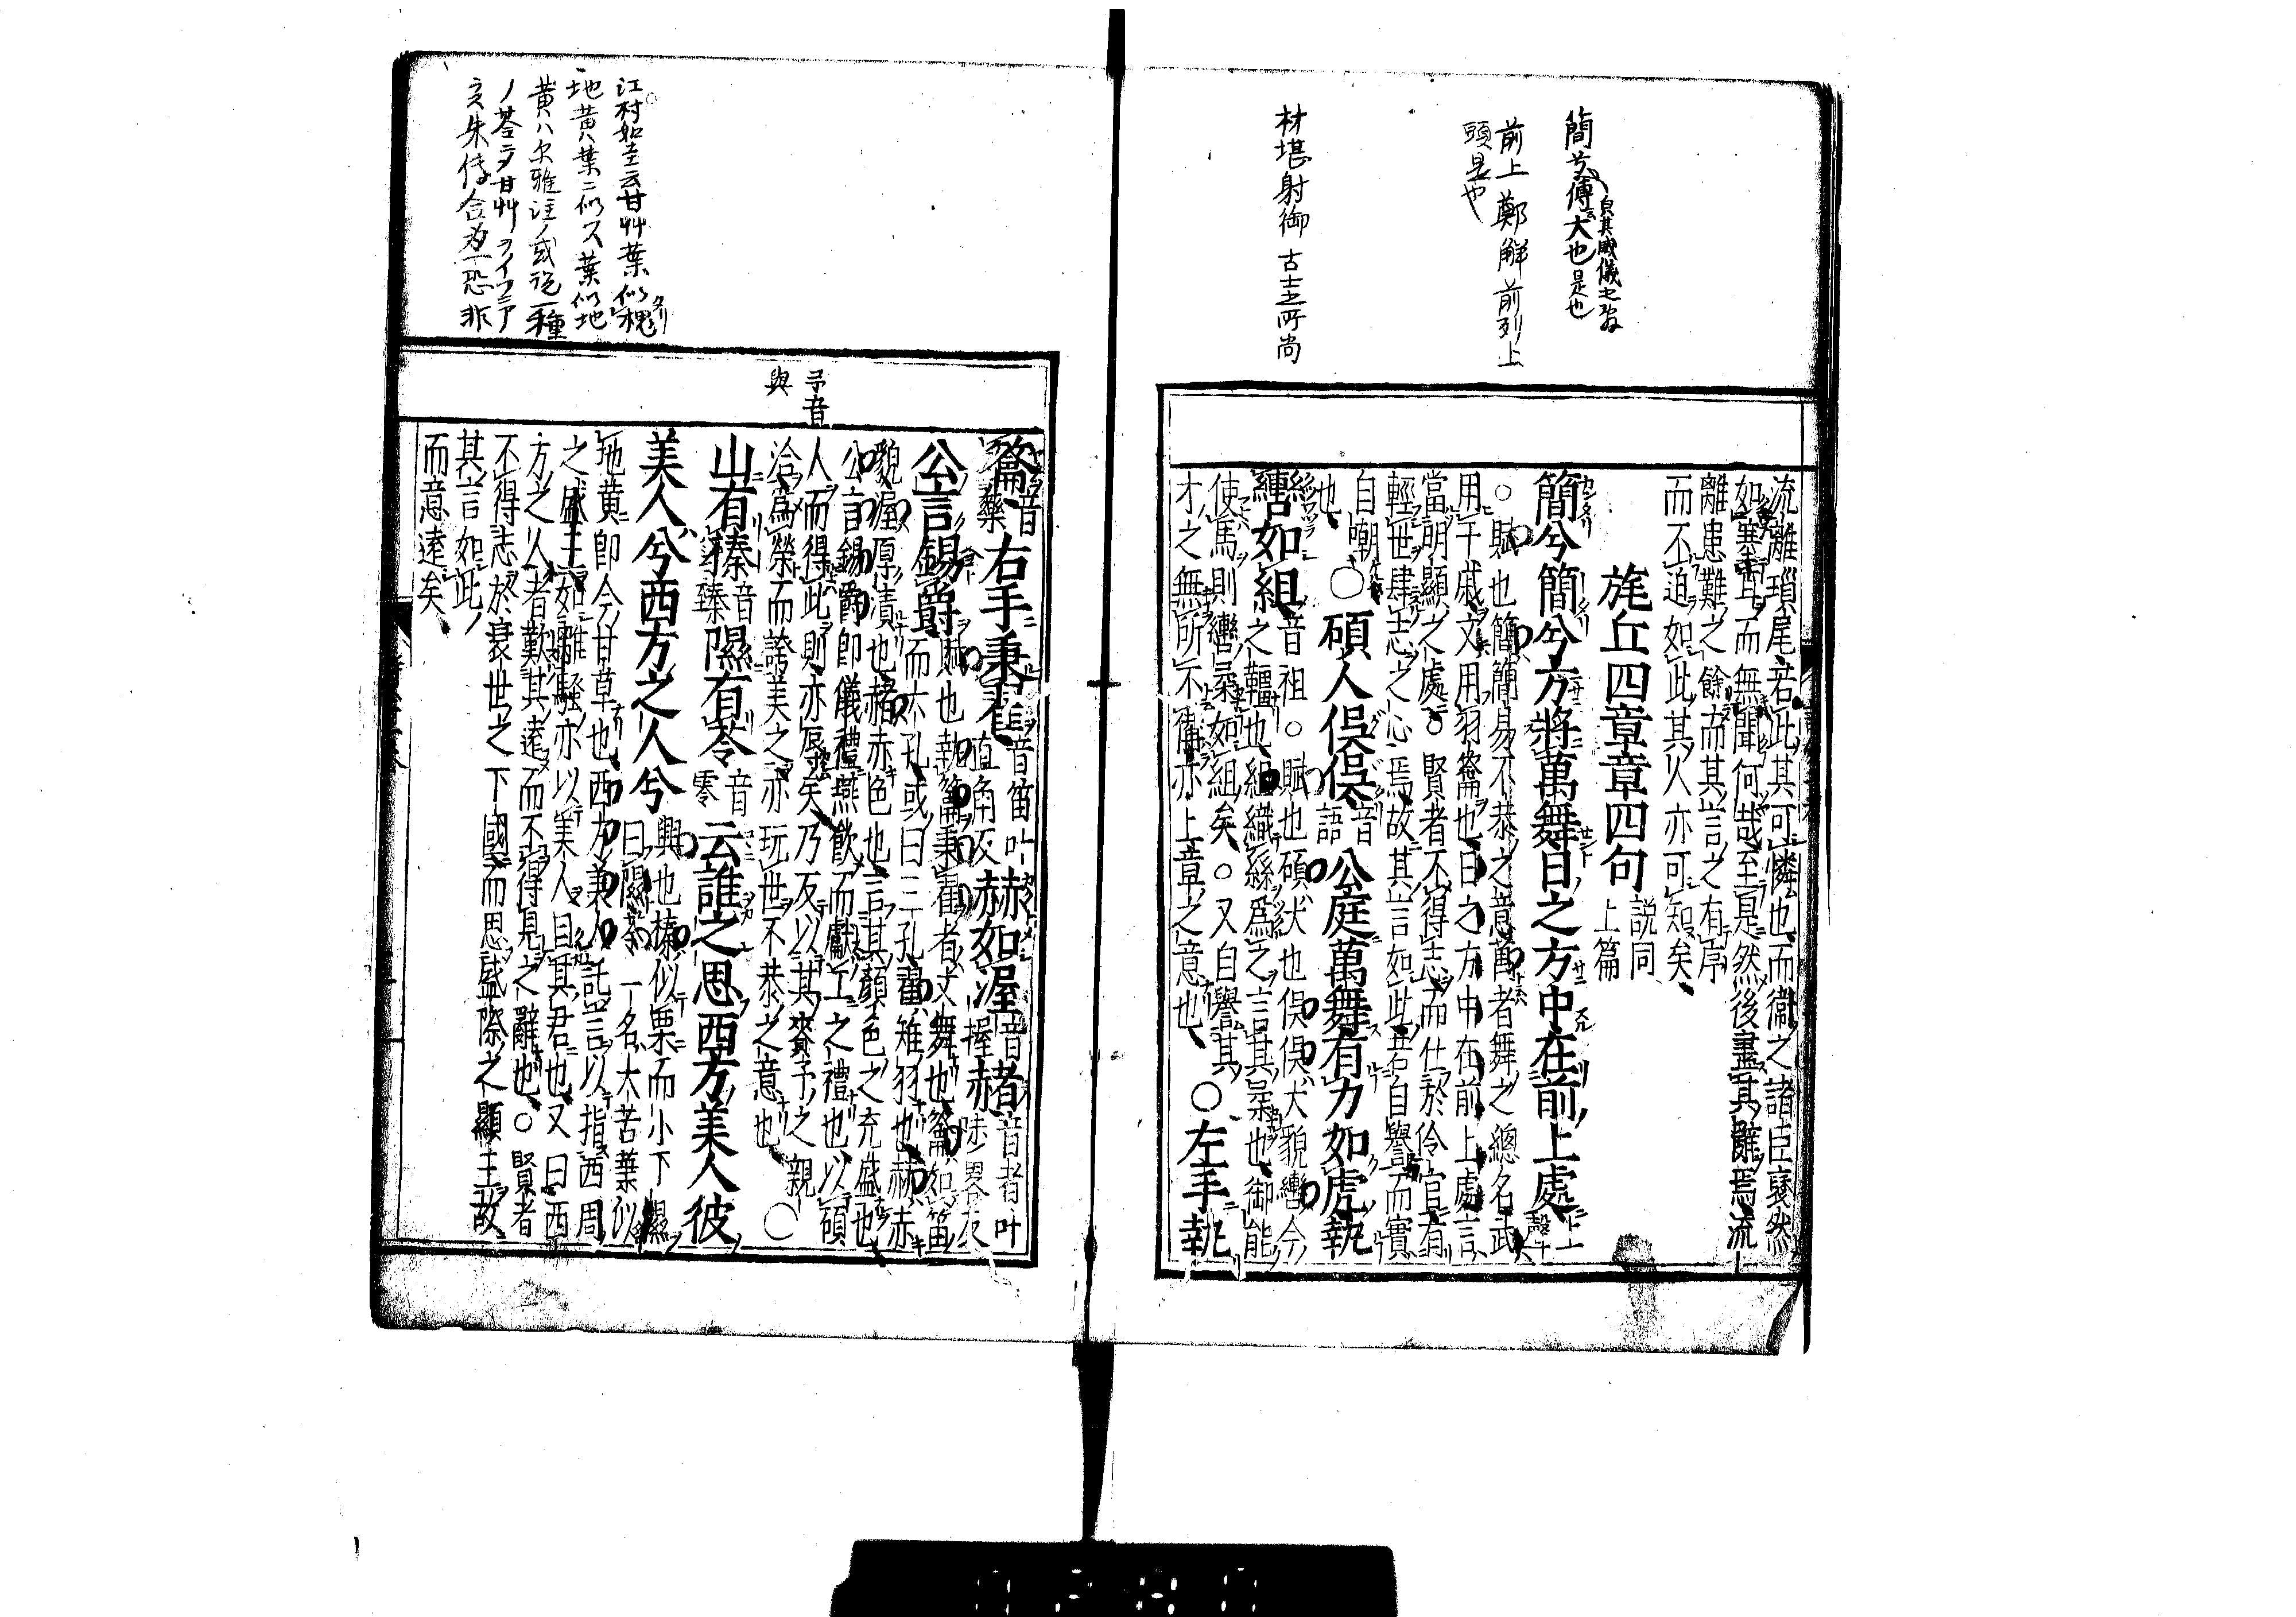 簡兮傳云大也是也
前上鄭解前列上
頭是也
材堪射御古士之所尚
流離瑣尾若此其可憐也而衞之諸臣褎然
如塞耳而無聞何哉至是然後盡其辭焉流
離患難之餘而其言之有序
而不迫如此其人亦可知矣
旄丘四章章四句 説同上篇
簡兮簡兮方將萬舞日之方中在前上處
○賦也簡簡易不恭之意萬者舞之總名武
用干戚文用羽籥也日之方中在前上處言
當明顯之處○賢者不得志而仕於伶官有
輕世肆志之心焉故其言如此若自譽而實
自嘲也
○碩人俣俣音語公庭萬舞有力如虎執
轡如組音祖○賦也碩大也俣俣大貌轡今
之韁也組織絲爲之言其柔也御能
使馬則轡柔如組矣○又自譽其
才之無所不備亦上章之意也
○左手執
籥音藥右手秉翟音笛叶直角反赫如渥音握赭音者叶陟畧反
公言錫爵賦也執籥秉翟者文舞也籥如笛
而六孔或曰三孔翟雉羽也赫赤
貌渥厚漬也赭赤色也言其顔色之充盛也
公言錫爵即儀禮燕飮而獻工之禮也以碩
人而得此則亦辱矣乃反以其賚予之親
洽爲榮而誇美之亦玩世不恭之意也
○
山有榛音臻隰有苓音零云誰之思西方美人彼
美人兮西方之人兮興也榛似栗而小下隰
曰隰苓一名大苦葉似
地黄即今甘草也西方美人託言以指西周
之盛王如離騷亦以美人目其君也又曰西
方之人者歎其遠而不得見之辭也○賢者
不得志於衰世之下國而思盛際之顯王故
其言如此
而意遠矣
予音
與
江村如圭云甘艸葉似槐
地黄ハ葉ニ似ス葉似地
黄ハ尔雅注ノ或説一種